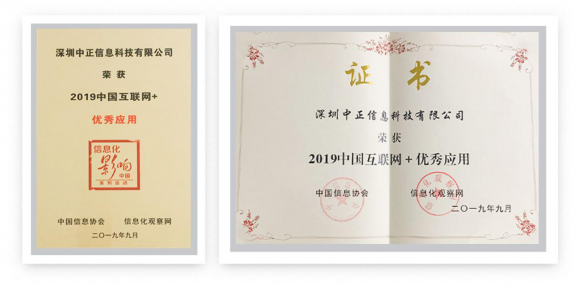 深圳中正信息科技有限公司
荣 获
2019中国互联网+
优秀应用
信息化
影响
中国
系列活动
中国信息协会 信息化观察网
二〇一九年九月
证 书
深圳中正信息科技有限公司
荣 获
2019中国互联网+优秀应用
中国信息协会 信息化观察网
二〇一九年九月